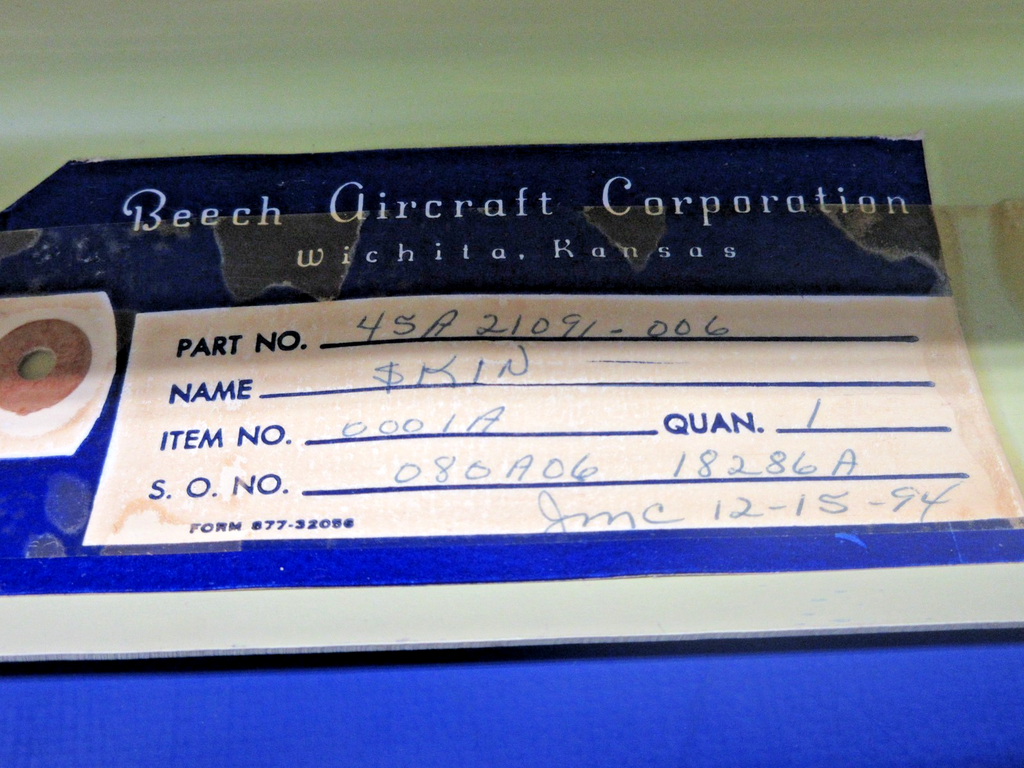 Beech Aircraft Corporation
Wichita, Kansas
PART NO. 45A21091-006
NAME SKIN
ITEM NO. 0001A QUAN. 1
S. O. NO. 080A06 18286A
FORM 877-32086 Jmc 12-15-94